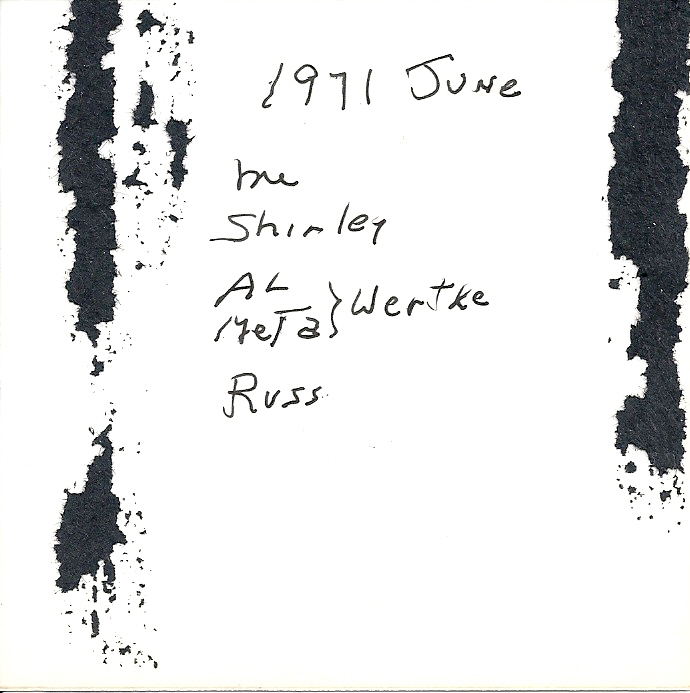 1971 June
me
Shirley
AL
Meta } Wertke
Russ